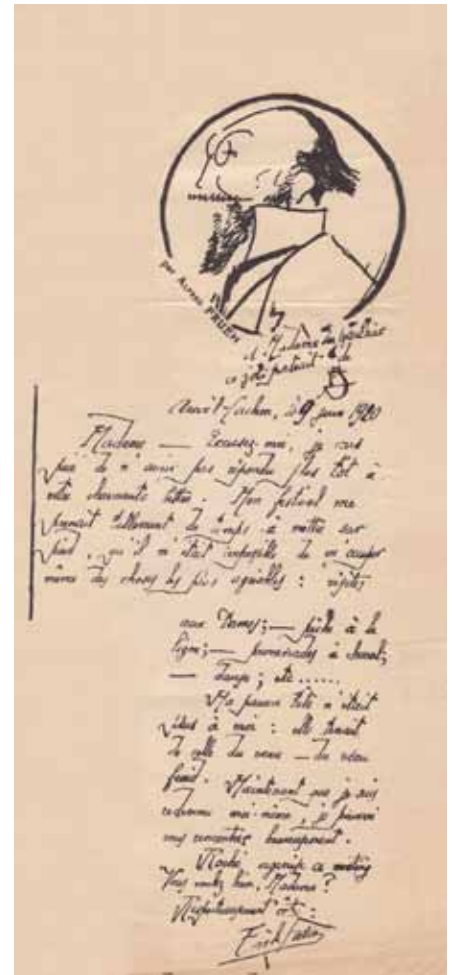 par Alfred FRUEH
à Madame
ce joli portrait de
Arcueil-Cachan, le 9 juin 1920
Madame — Excusez-moi, je vous
prie de n'avoir pas répondu plus tôt à
votre charmante lettre. Mon festival me
prenait tellement de temps à mettre sur
pied, qu'il m'était impossible de m'occuper
même des choses les plus agréables : visites
aux Dames ; — pêche à la
ligne ; — promenades à cheval ;
— danse ; etc......
Ma pauvre tête n'était
plus à moi : elle tenait
de celle du veau — du veau
froid. Maintenant que je suis
redevenu moi-même, je pourrai
vous rencontrer heureusement.
Roché organise ce
Vous voulez bien, Madame ?
Respectueusement vôtre :
Erik Satie